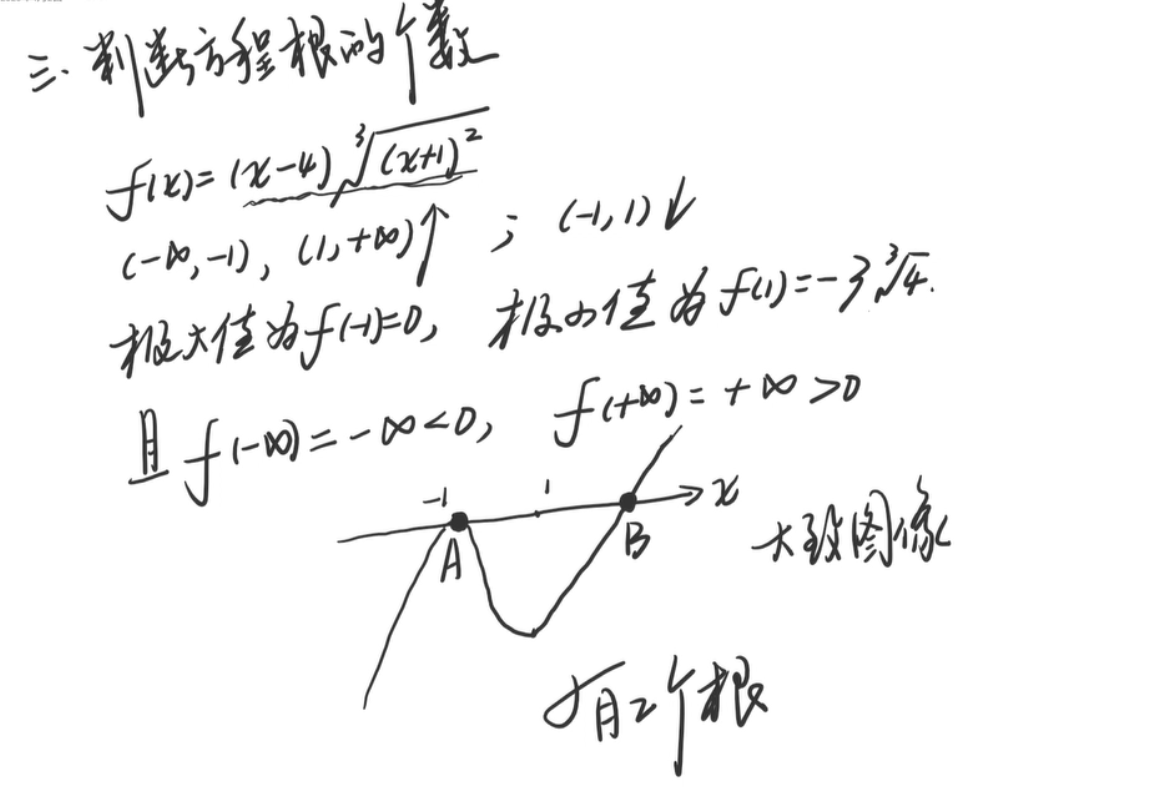 三.判断方程根的个数
f(x)=(x-4)∛(x+1)²
(-∞,-1), (1,+∞)↑ ; (-1,1)↓
极大值为f(-1)=0, 极小值为f(1)=-3∛4.
且f(-∞)=-∞<0, f(+∞)=+∞>0
-1 1 x
A B 大致图像
有2个根